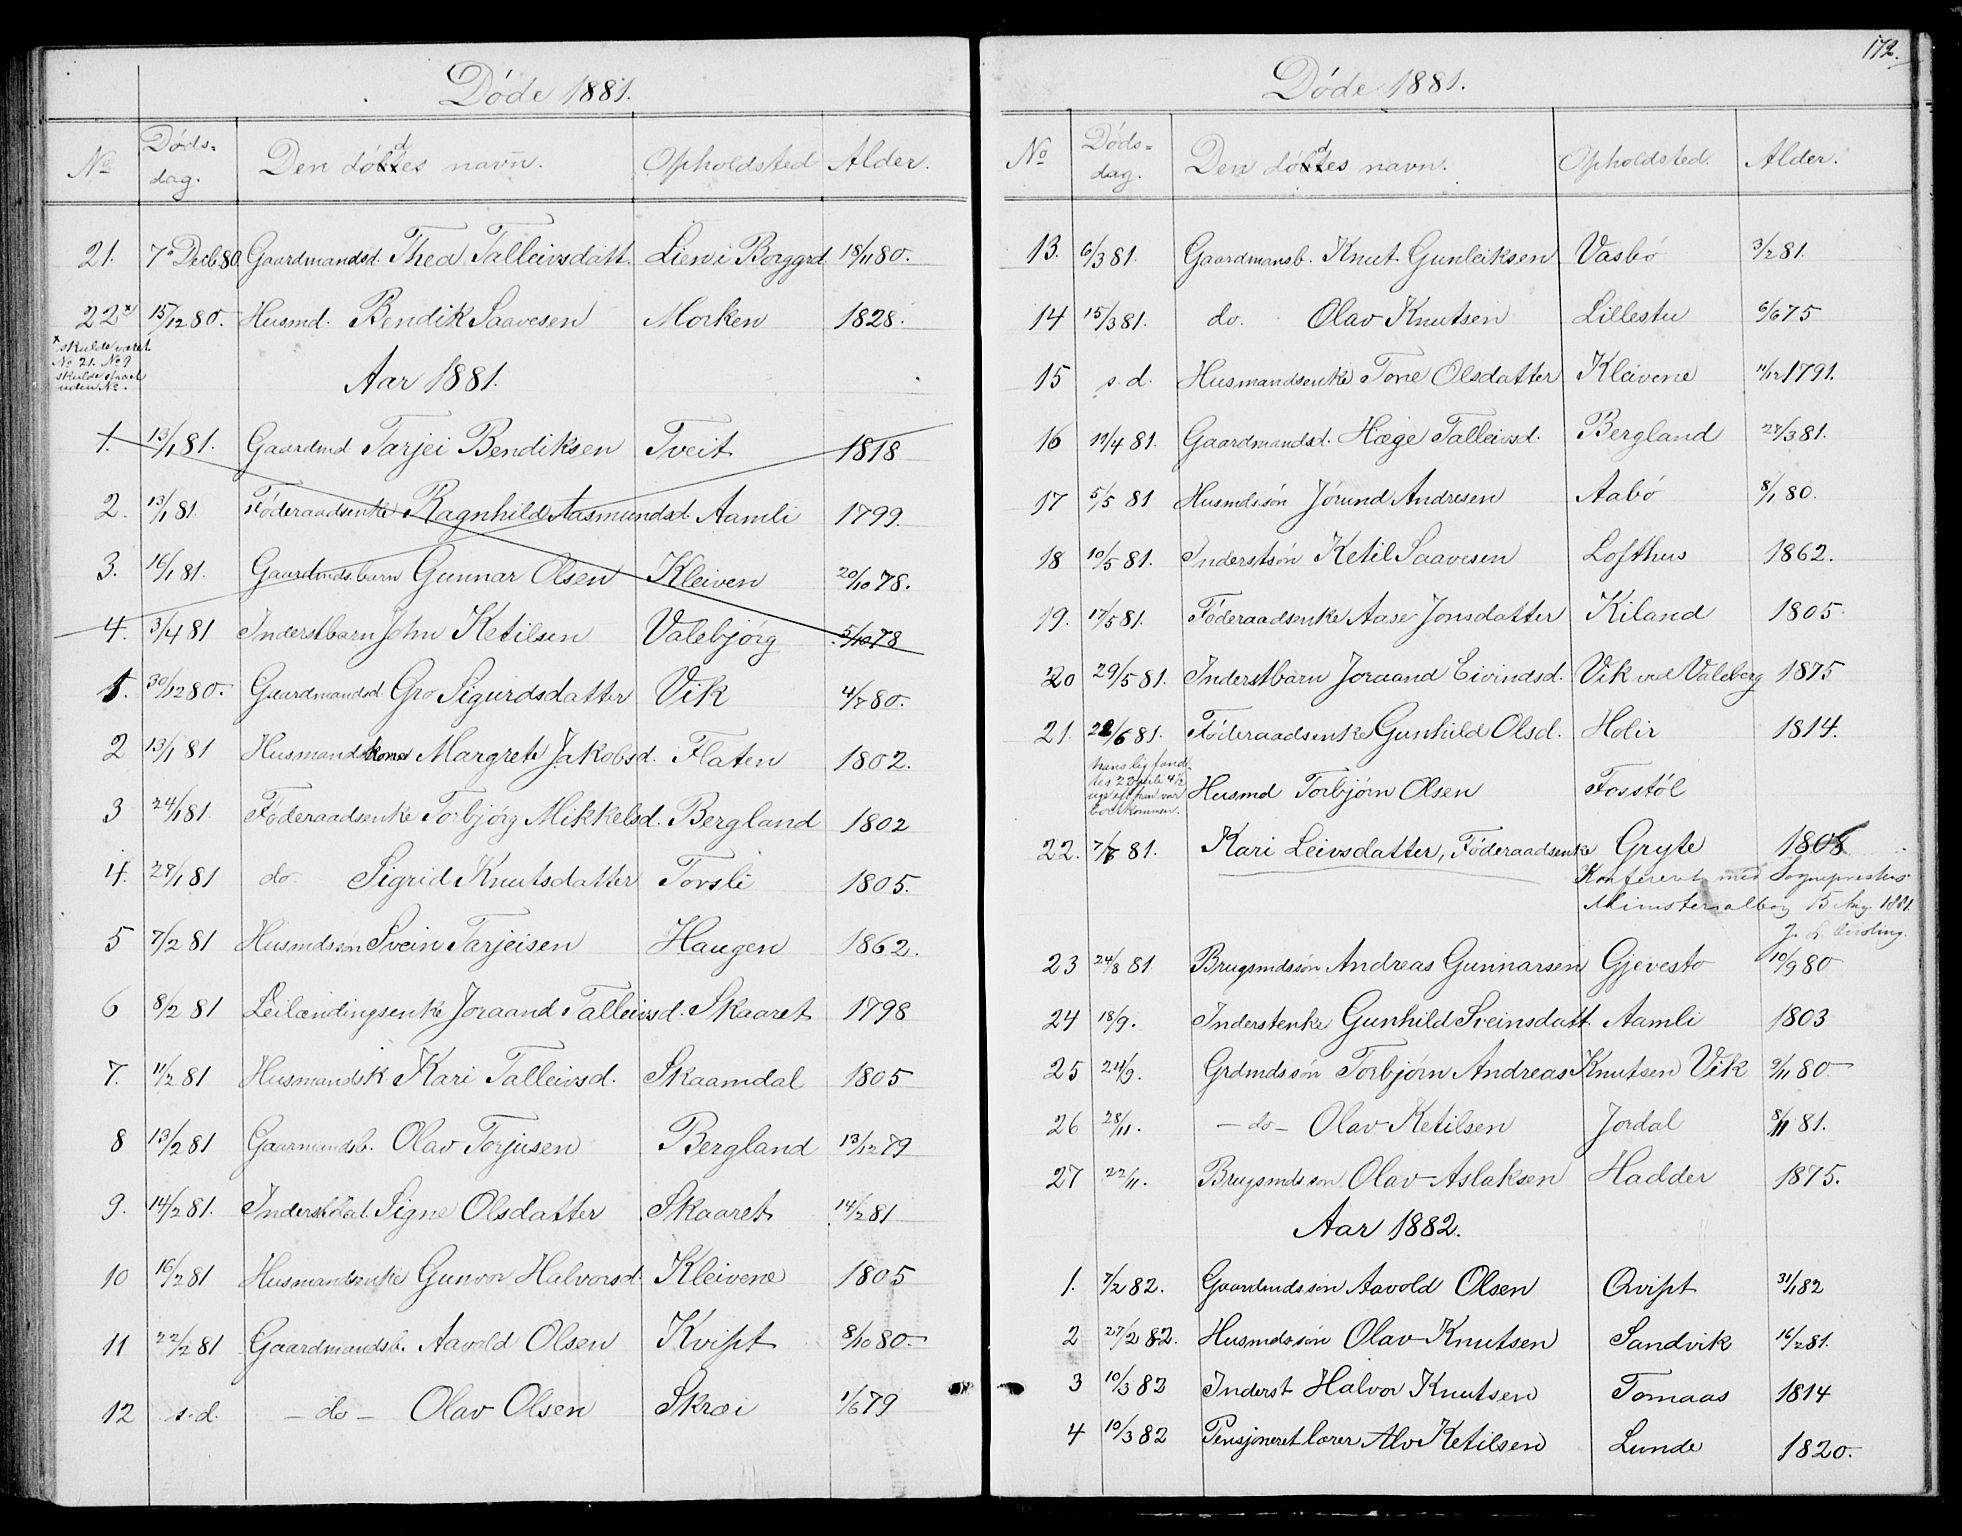 Døde 1881.
No Døds-dag. Den døddes navn. Opholdsted Alder.
21. 7 Decb 80. Gaardmandsd. Thea Talleivsdatt. Lien i Borggrd 18/11 80.
22x 15/12 80. Husmd. Bendik Saavesen Morken 1828.
x skulde været
No 21. No 9
skulde staaet
uden No.
Aar 1881.
1. 13/1 81. Gaardmd Tarjei Bendiksen Tveit 1818
2. 13/1 81 Føderaadsenke Ragnhild Aasmundsd. Aamli 1799.
3. 16/1 81. Gaardmdsbarn Gunnar Olsen Kleiven 20/10 78.
4. 3/4 81 Inderstbarn John Ketilsen Valebjørg 5/10 78
1. 30/12 80. Gaardmandsd Gro Sigurdsdatter Vik 4/7 80.
2 13/1 81 Husmandskone Margrete Jakobsd. Flaten 1802.
3 24/1 81. Føderaadsenke Torbjørg Mikkelsd. Bergland 1802
4. 27/1 81 do. Sigrid Knutsdatter Tovsli 1805.
5 7/2 81 Husmdssøn Svein Tarjeisen Haugen 1862.
6 8/2 81 Leilændingsenke Joraand Talleivsd. Skaaret 1798
7. 11/2 81 Husmandsk. Kari Talleivsd. Skaamdal 1805
8 13/2 81 Gaarmandsb. Olav Torjusen Bergland 13/12 79
9. 14/2 81. Inderstdat. Signe Olsdatter Skaaret 14/2 81
10 16/2 81 Husmandsenke Gunvor Halvorsd. Kleivene 1805
11 22/2 81 Gaardmandsb. Aavold Olsen Kvipt 8/10 80.
12 s.d. – do – Olav Olsen Skrøi 1/6 79
172.
Døde 1881.
No Døds-dag. Den døddes navn. Opholdsted. Alder.
13. 6/3 81. Gaardmansb. Knut Gunleiksen Vasbø 3/2 81.
14 15/3 81. do. Olav Knutsen Lillestu 6/6 75
15 s.d. Husmandsenke Tone Olsdatter Kleivene 11/12 1791.
16 19/4 81. Gaardmandsd. Hæge Talleivsd. Bergland 27/3 81.
17 5/5 81 Husmdssøn Jørund Andresen Aabø 8/1 80.
18 10/5 81. Inderstsøn Ketil Saavesen Lofthus 1862.
19. 17/5 81. Føderaadsenke Aase Jonsdatter Kiland 1805.
20 29/5 81. Inderstbarn Joraand Eivindsd. Vik ved Valeberg 1875
21. 22/6 81. Føderaadsenke Gunhild Olsd. Holir 1814.
hans lig fand-
Husmd Torbjørn Olsen Fosstøl
22. 7/7 81. Kari Leivsdatter, Føderaadsenke Gryte 1808
Konfereret med Sogneprestens
Ministerialbog 15 Aug. 1881.
23 24/8 81 Brugsmdssøn Andreas Gunnarsen Gjevesto 10/9 80
24 18/9. Inderstenke Gunhild Sveinsdatt. Aamli 1803
25 24/9. Grdmdssøn Torbjørn Andreas Knutsen Vik 9/11 80
26 28/11. – do – Olav Ketilsen Jordal 8/11 81.
27 22/11. Brugsmdssøn Olav Aslaksen Hadder 1875.
Aar 1882.
1. 7/2 82. Gaardmdssøn Aavold Olsen Qvipt 31/1 82
2 27/2 82. Husmdssøn Olav Knutsen Sandvik 16/2 81.
3 10/3 82 Inderst Halvor Knutsen Tomaas 1814
4 10/3 82 Pensjoneret lærer Alv Ketilsen Lunde 1820.